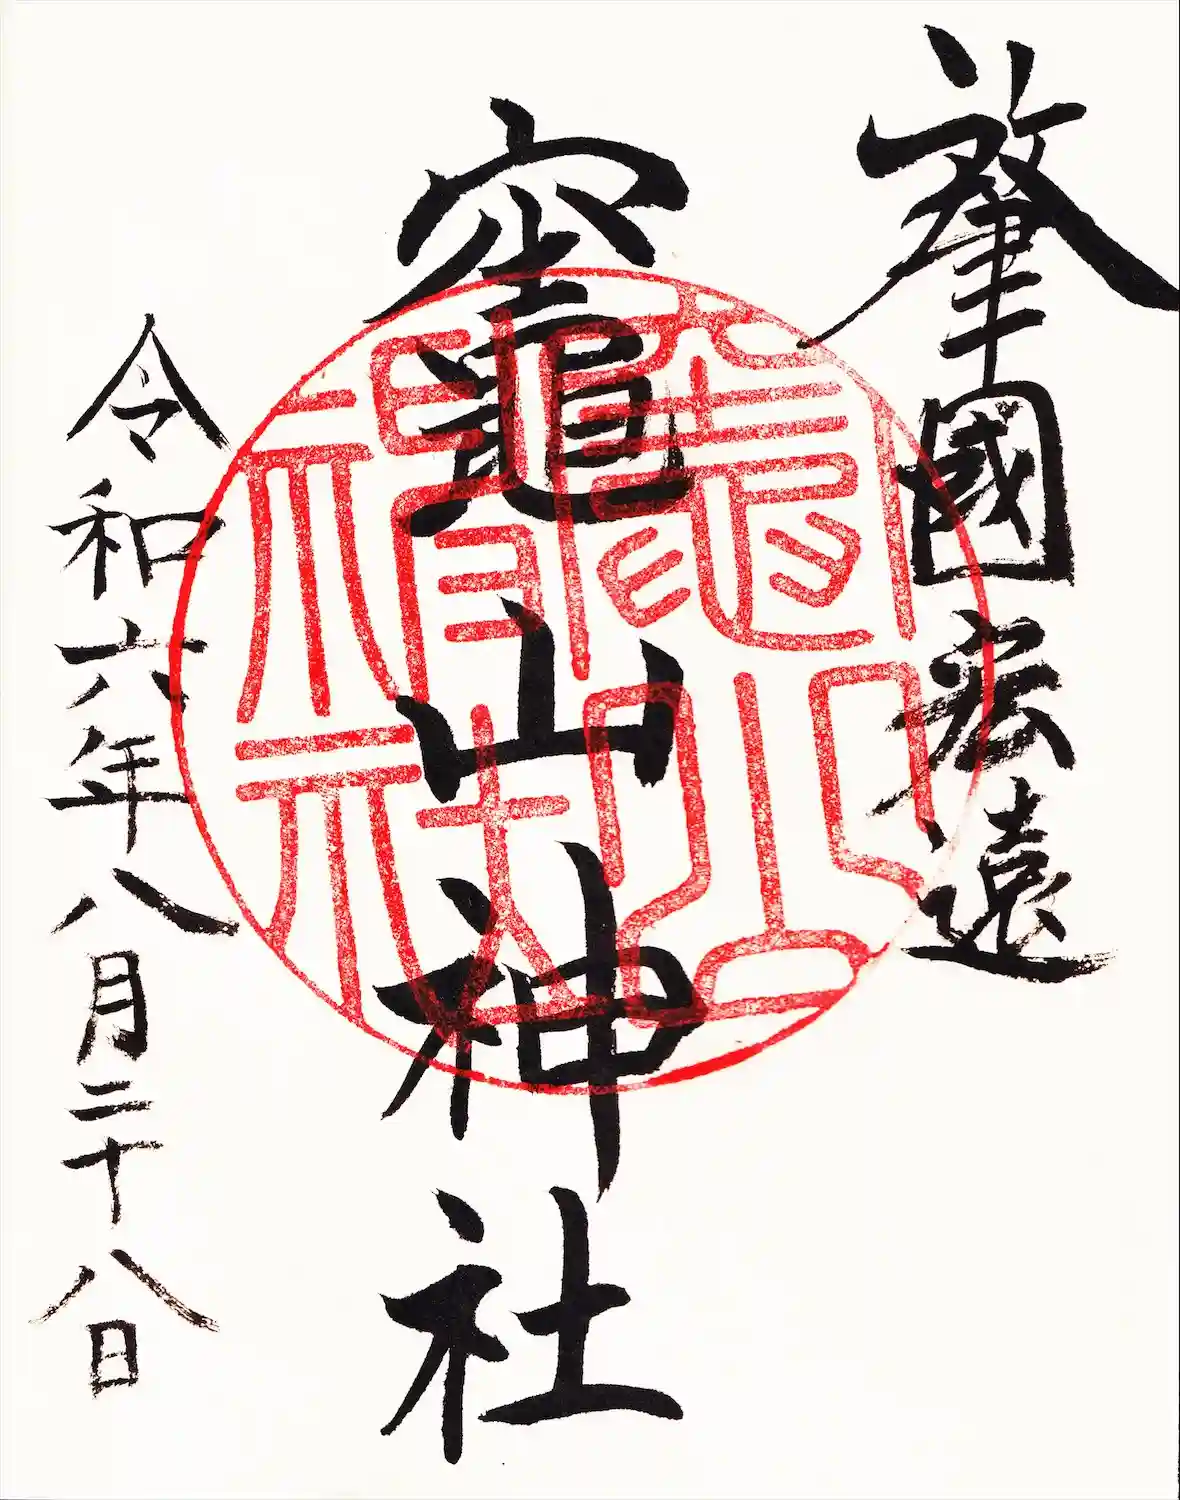 肇國宏遠
竈山神社
令和六年八月二十八日
竈山神社